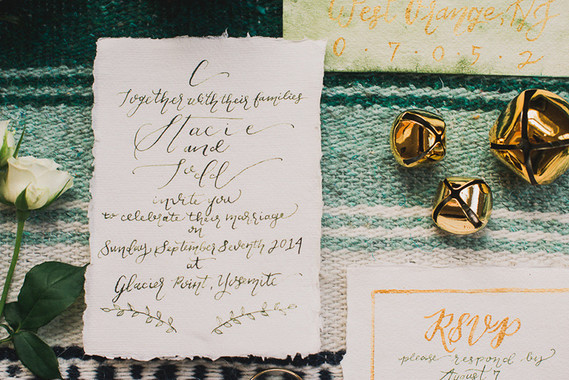 West Orange, NJ
0 7 0 5 2
Together with their families
Stacie
and
Todd
invite you
to celebrate their marriage
on
Sunday, September Seventh 2014
at
Glacier Point, Yosemite
RSVP
please respond by
August 7